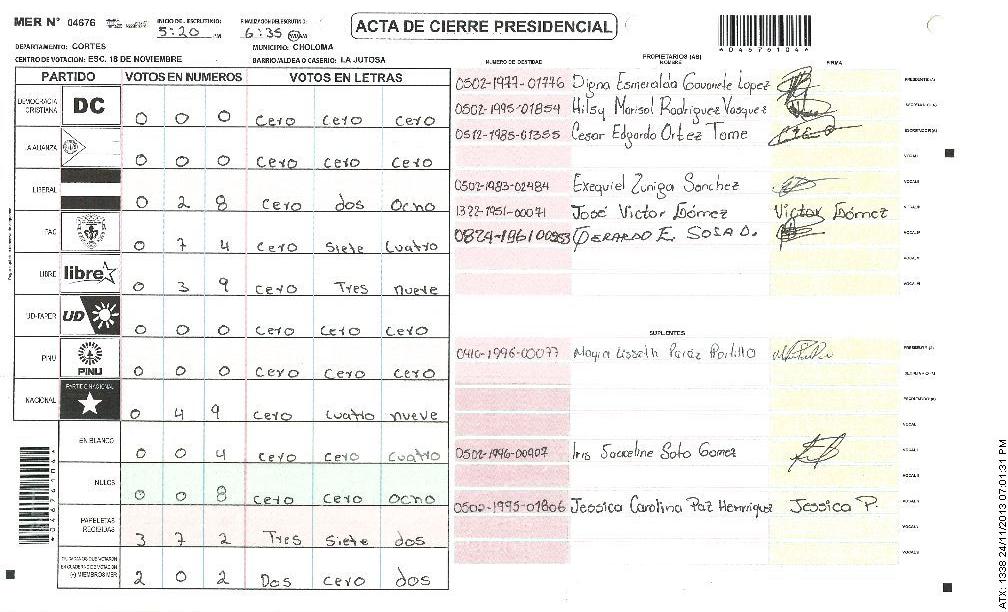 MER N° 04676 INICIO DEL ESCRUTINIO 5:20 PM FINALIZACION DEL ESCRUTINIO 6:35
ACTA DE CIERRE PRESIDENCIAL
04676104
DEPARTAMENTO: CORTES MUNICIPIO: CHOLOMA
CENTRO DE VOTACION: ESC. 18 DE NOVIEMBRE BARRIO/ALDEA O CASERIO: LA JUTOSA
PARTIDO VOTOS EN NUMEROS VOTOS EN LETRAS
DEMOCRACIA CRISTIANA DC 0 0 0 Cero Cero Cero
LA ALIANZA 0 0 0 Cero Cero Cero
LIBERAL 0 2 8 Cero dos Ocho
PAC 0 7 4 Cero Siete Cuatro
LIBRE libre 0 3 9 Cero Tres nueve
UD-FAPER UD 0 0 0 Cero Cero Cero
PINU PINU 0 0 0 Cero Cero Cero
NACIONAL PARTIDO NACIONAL 0 4 9 Cero Cuatro nueve
EN BLANCO 0 0 4 Cero Cero Cuatro
NULOS 0 0 8 Cero Cero Ocho
PAPELETAS RECIBIDAS 3 7 2 Tres Siete dos
CIUDADANOS QUE VOTARON EN CUADERNO DE VOTACION (+) MIEMBROS MER 2 0 2 Dos Cero dos
PROPIETARIOS (AS)
NUMERO DE IDENTIDAD NOMBRE FIRMA
0502-1977-01776 Digna Esmeralda Gavarrete Lopez PRESIDENTE (A)
0502-1995-01854 Hilsy Marisol Rodriguez Vasquez SECRETARIO (A)
0512-1985-01355 Cesar Edgardo Ortez Tome ESCRUTADOR (A)
VOCAL I
0502-1983-02484 Exequiel Zuniga Sanchez VOCAL II
1322-1951-00071 José Victor Gómez Victor Gómez VOCAL III
0824-1961-00553 GERARDO E. SOSA O. VOCAL IV
VOCAL V
VOCAL VI
SUPLENTES
0410-1996-00077 Mayra Lisseth Peréz Portillo PRESIDENTE (A)
SECRETARIO (A)
ESCRUTADOR (A)
VOCAL I
0502-1996-00907 Iris Jacceline Soto Gomez
0502-1995-01806 Jessica Carolina Paz Henriquez Jessica P.
ATX: 1338 24/11/2013 07:01:31 PM